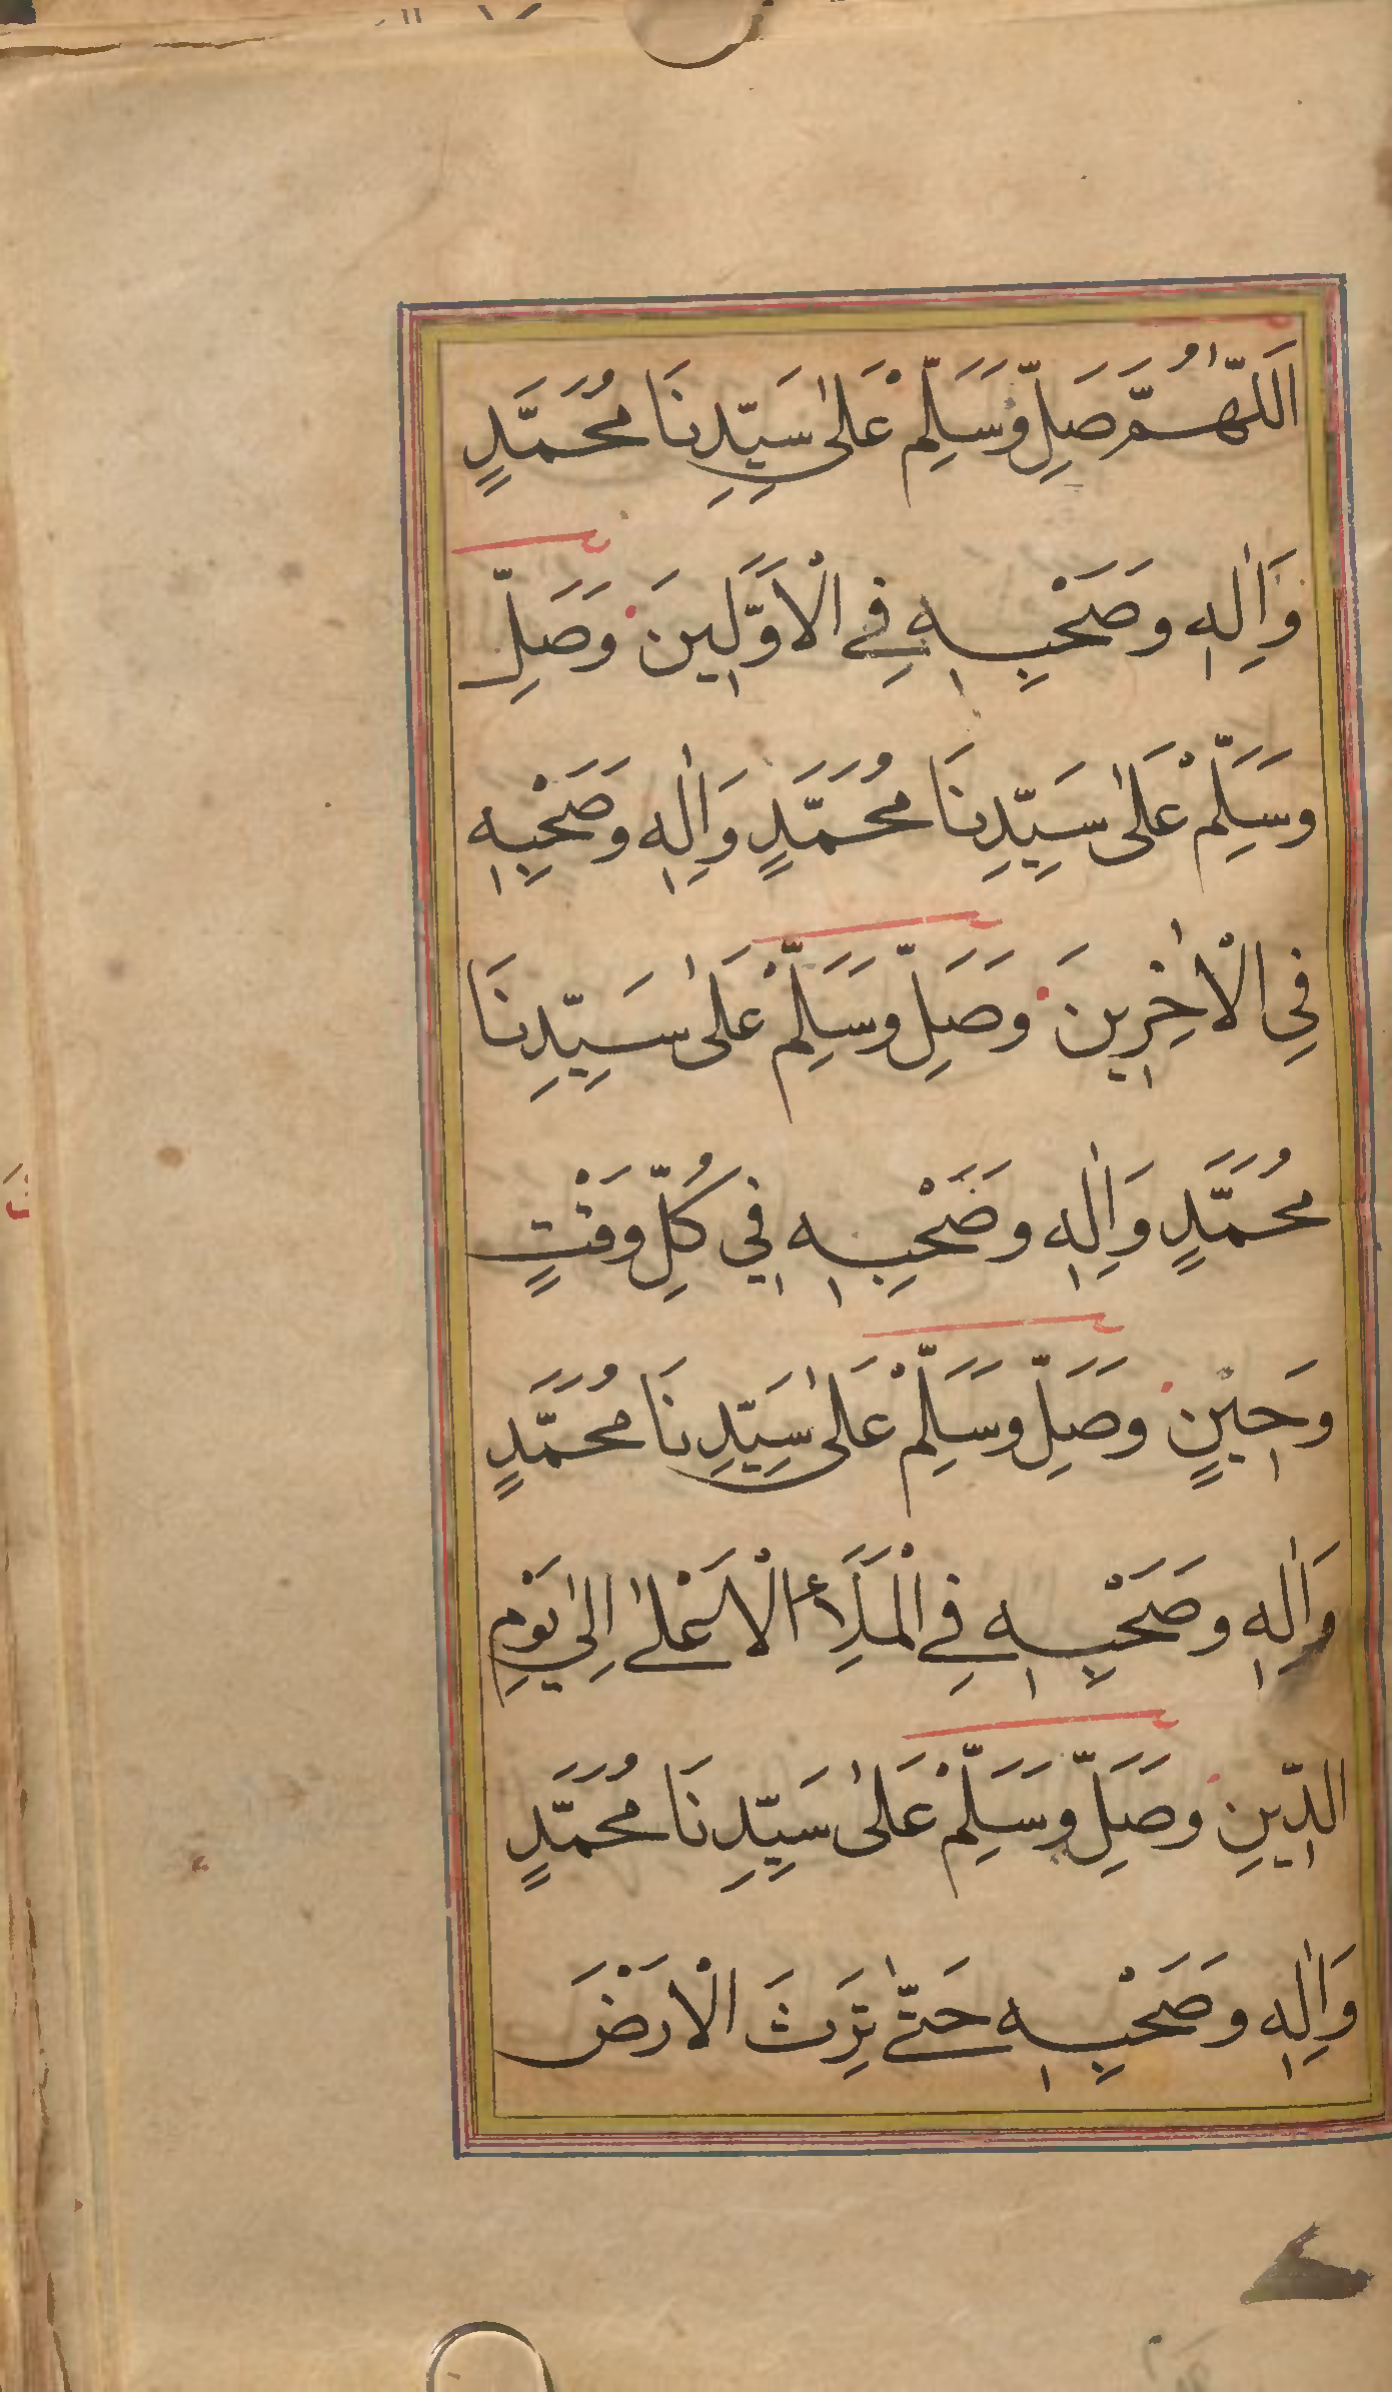 اَللّٰهُمَّ صَلِّ وَسَلِّمْ عَلٰى سَيِّدِنَا مُحَمَّدٍ
وَاٰلِهٖ وَصَحْبِهٖ فِي الْاَوَّلِينَ وَصَلِّ
وَسَلِّمْ عَلٰى سَيِّدِنَا مُحَمَّدٍ وَاٰلِهٖ وَصَحْبِهٖ
فِي الْاٰخِرِينَ وَصَلِّ وَسَلِّمْ عَلٰى سَيِّدِنَا
مُحَمَّدٍ وَاٰلِهٖ وَصَحْبِهٖ فِي كُلِّ وَقْتٍ
وَحِيْنٍ وَصَلِّ وَسَلِّمْ عَلٰى سَيِّدِنَا مُحَمَّدٍ
وَاٰلِهٖ وَصَحْبِهٖ فِي الْمَلَاِ الْاَعْلٰى اِلٰي يَوْمِ
الدِّينِ وَصَلِّ وَسَلِّمْ عَلٰى سَيِّدِنَا مُحَمَّدٍ
وَاٰلِهٖ وَصَحْبِهٖ حَتّٰى تَرِثَ الْاَرْضَ